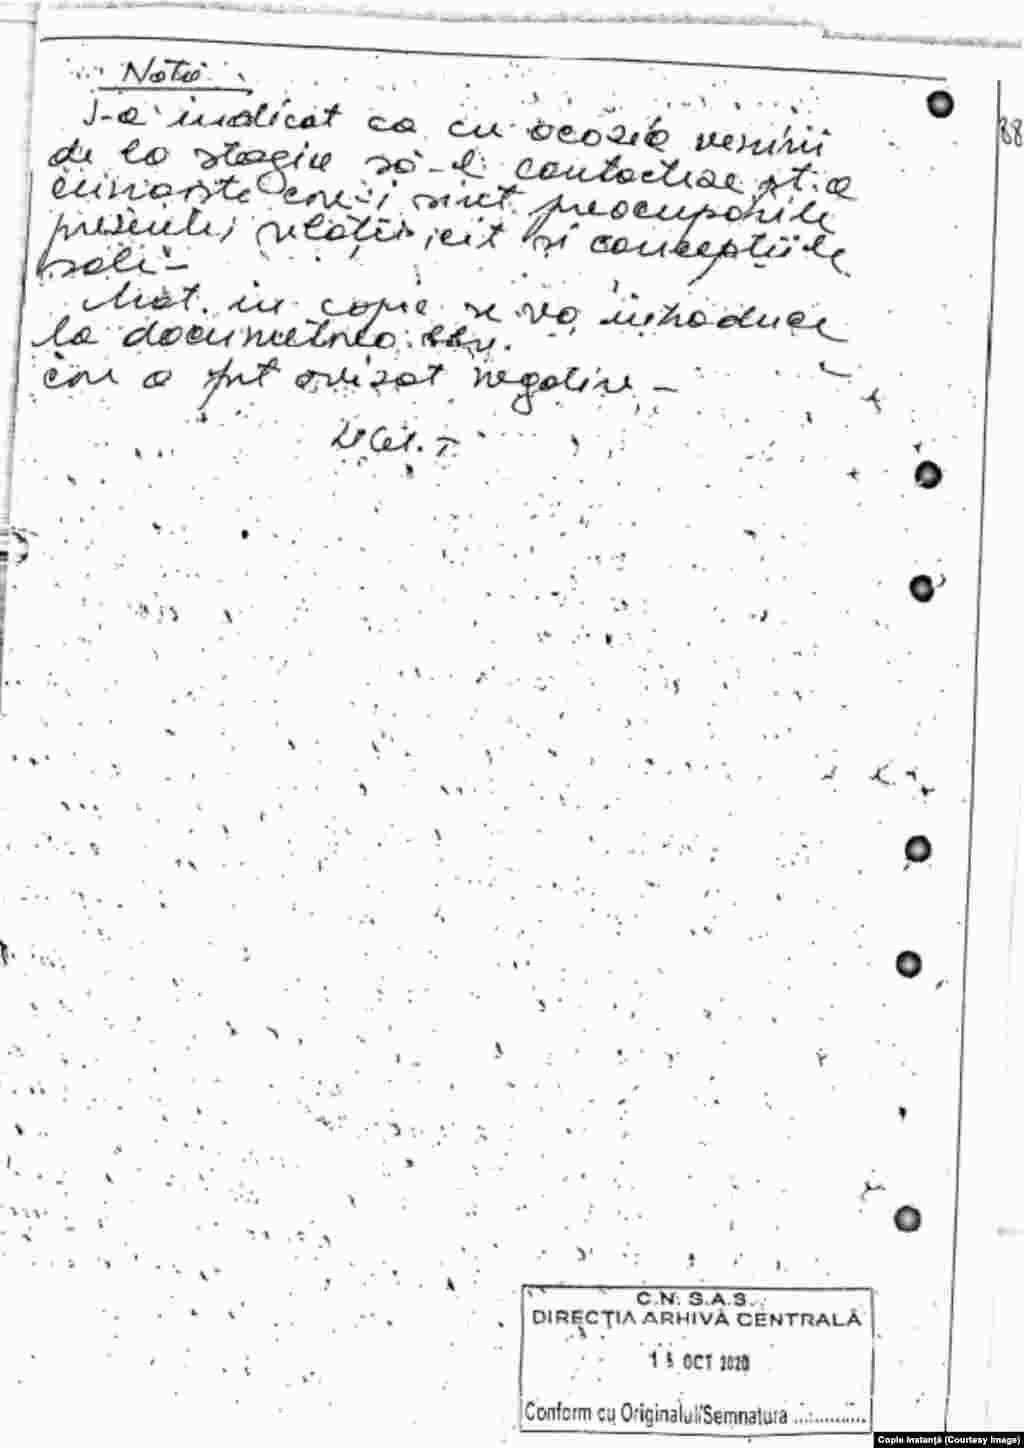 Notă
I-a indicat ca cu ocazia venirii
de la stagiu să-l contacteze pt. a
cunoaște care-i sînt preocupările
prezente, relații cît și concepțiile
sale -
Mat. in copie se va introduce
la documentarea
care a fost avizat negativ -
88
C.N.S.A.S.
DIRECȚIA ARHIVĂ CENTRALĂ
OCT 2020
Conform cu Originalul/Semnatura ..............
Copie Instanță (Courtesy Image)